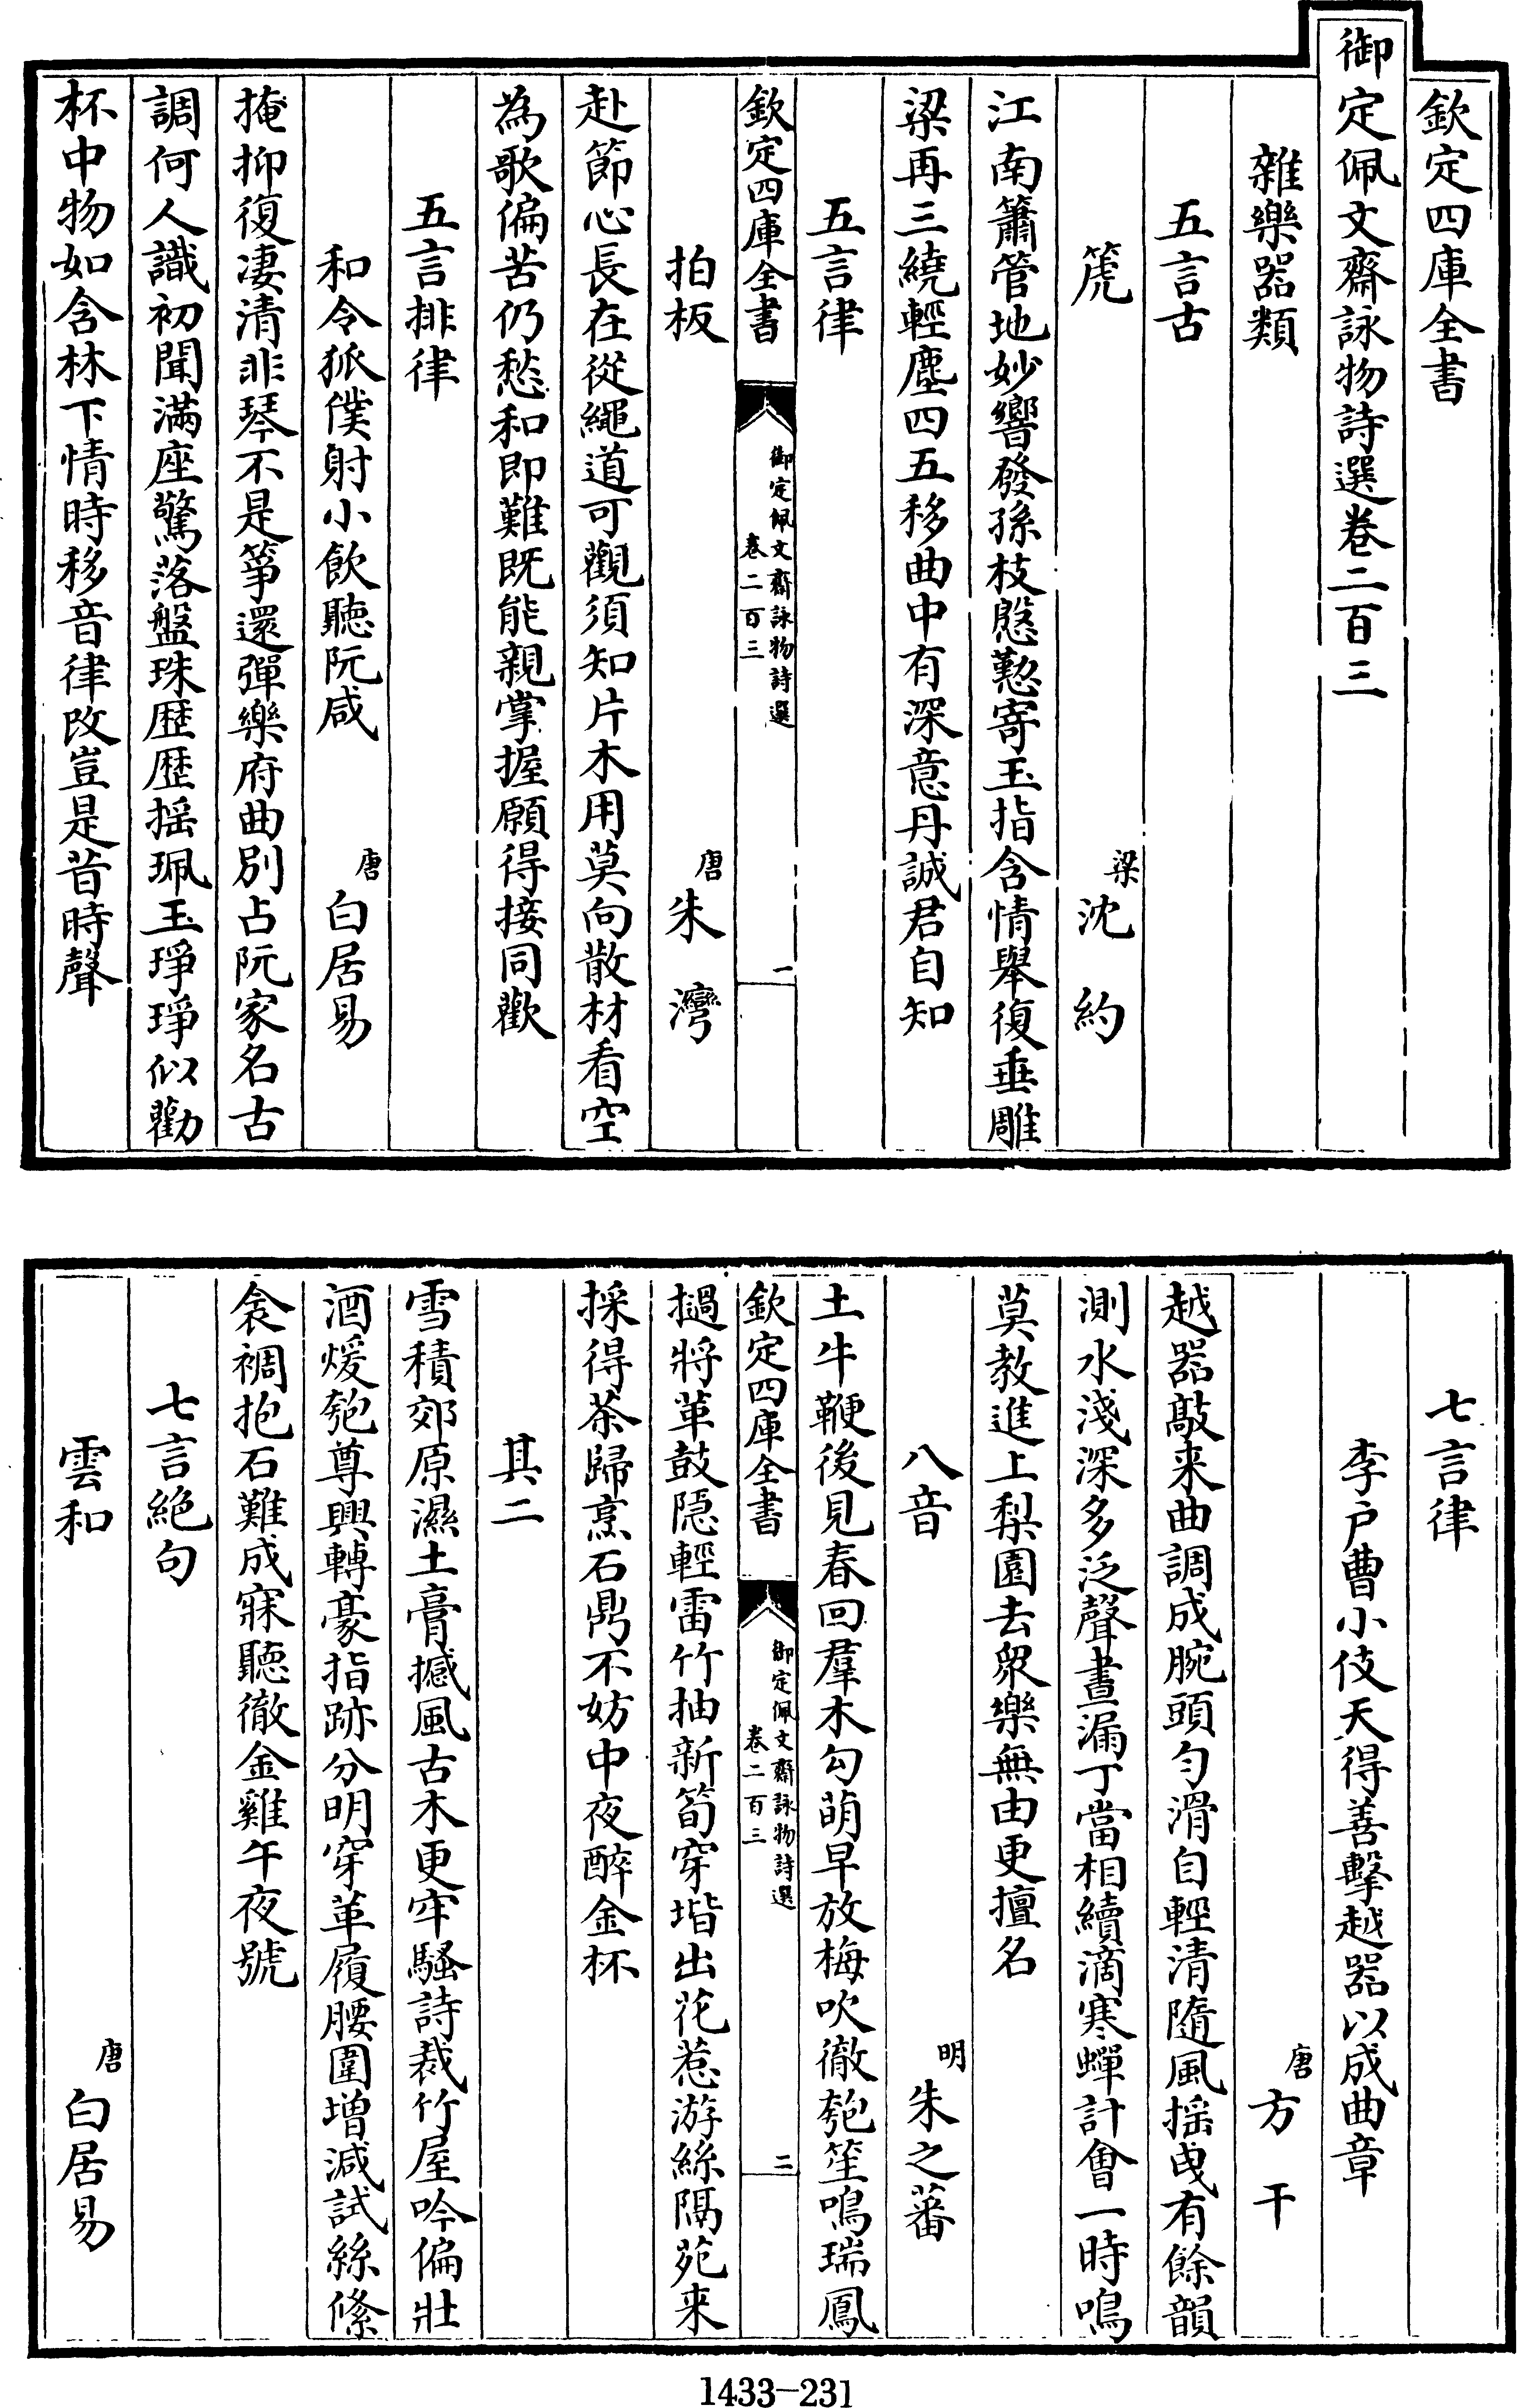 欽定四庫全書
御定佩文齋詠物詩選卷二百三
雜樂器類
五言古
箎　梁沈約
江南簫管地妙響發孫枝慇懃寄玉指含情舉復垂雕
梁再三繞輕塵四五移曲中有深意丹誠君自知
五言律
欽定四庫全書　御定佩文齋詠物詩選　卷二百三　一
拍板　唐朱灣
赴節心長在從繩道可觀須知片木用莫向散材看空
為歌偏苦仍愁和即難既能親掌握願得接同歡
五言排律
和令狐僕射小飲聽阮咸　唐白居易
掩抑復淒清非琴不是箏還彈樂府曲別占阮家名古
調何人識初聞滿座驚落盤珠歴歴搖珮玉琤琤似勸
杯中物如含林下情時移音律改豈是昔時聲
七言律
李戸曹小伎天得善擊越器以成曲章
唐方干
越器敲来曲調成腕頭勻滑自輕清隨風搖曳有餘韻
測水淺深多泛聲晝漏丁當相續滴寒蟬計會一時鳴
莫教進上梨園去衆樂無由更擅名
八音　明朱之蕃
土牛鞭後見春回羣木勾萌早放梅吹徹匏笙鳴瑞鳳
撾將革鼓隱輕雷竹抽新筍穿堦出花惹游絲隔苑来
欽定四庫全書　御定佩文齋詠物詩選　卷二百三　二
採得茶歸烹石鼎不妨中夜醉金杯
其二
雪積郊原濕土膏撼風古木更牢騷詩裁竹屋吟偏壯
酒煖匏尊興轉豪指跡分明穿革履腰圍增減試絲絛
衾裯抱石難成寐聽徹金雞午夜號
七言絕句
雲和　唐白居易
1433-231